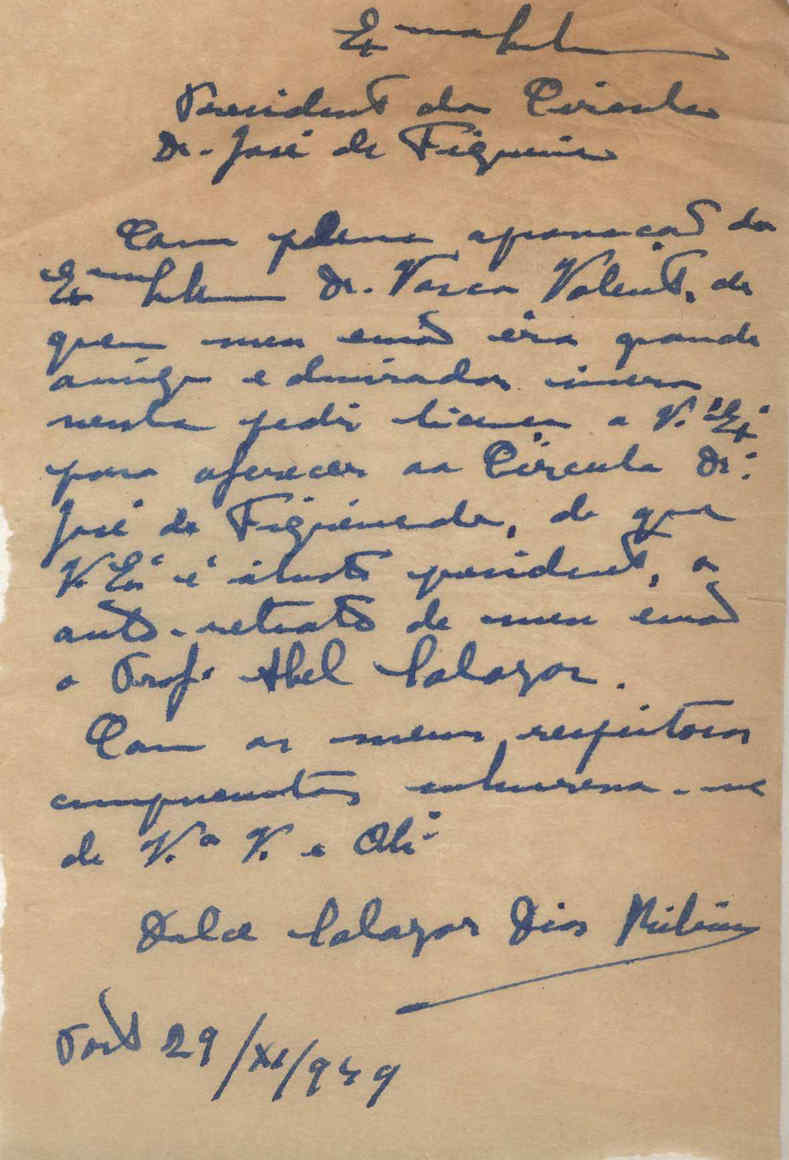 Exmo Senhor
Presidente do Circulo
Dr. José de Figueiredo
Com plena aprovação do
Exmo Senhor Dr. Vasco Valente, de
quem meu irmão era grande
amigo e admirador,
venho pedir licença a V. Exª
para oferecer ao Círculo Dr.
José de Figueiredo, de que
V. Exª é ilustre presidente, o
auto-retrato de meu irmão
o Prof. Abel Salazar.
Com os meus respeitosos
cumprimentos subscrevo-me
de V.ª V. e Obr.
Dulce Salazar Dias Ribeiro
Porto 29/XI/949